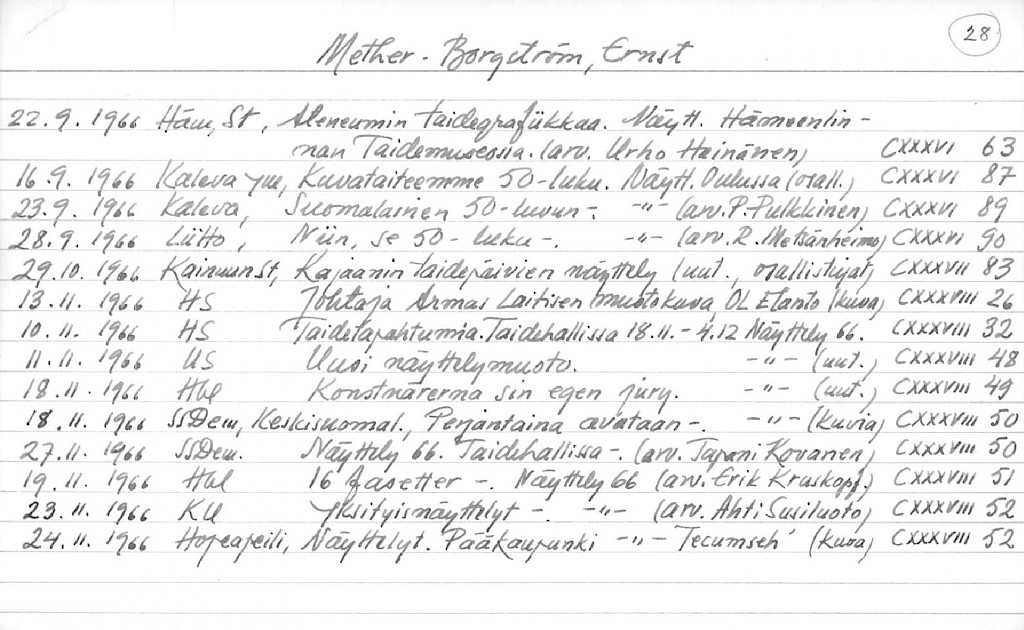 28
Mether-Borgström, Ernst
22.9.1966 Häm,St, Ateneumin taidegrafiikkaa. Näytt. Hämeenlin-
nan Taidemuseossa. (arv. Urho Heinänen) CXXXVI 63
16.9.1966 Kaleva ym, Kuvataiteemme 50-luku. Näytt. Oulussa (osall.) CXXXVI 87
23.9.1966 Kaleva, Suomalainen 50-luvun-. -"- (arv. P. Pulkkinen) CXXXVI 89
28.9.1966 Liitto, Niin, se 50-luku-. -"- (arv. R. Metsänheimo) CXXXVI 90
29.10.1966 KainuunSt, Kajaanin taidepäivien näyttely (uut., osallistujat) CXXXVII 83
13.11.1966 HS Johtaja Armas Laitisen muotokuva, OL Elanto (kuva) CXXXVIII 26
10.11.1966 HS Taidetapahtumia. Taidehallissa 18.11.-4.12 Näyttely 66. CXXXVIII 32
11.11.1966 US Uusi näyttelymuoto. -"- (uut.) CXXXVIII 48
18.11.1966 Hbl Konstnärerna sin egen jury. -"- (uut.) CXXXVIII 49
18.11.1966 SSDem, Keskisuomal., Perjantaina avataan-. -"- (kuvia) CXXXVIII 50
27.11.1966 SSDem. Näyttely 66. Taidehallissa-. (arv. Tapani Kovanen) CXXXVIII 50
19.11.1966 Hbl 16 fasetter -. Näyttely 66 (arv. Erik Kruskopf.) CXXXVIII 51
23.11.1966 KU Yksityisnäyttelyt -. -"- (arv. Ahti Susiluoto) CXXXVIII 52
24.11.1966 Hopeapeili, Näyttelyt. Pääkaupunki -"- Tecumseh' (kuva) CXXXVIII 52